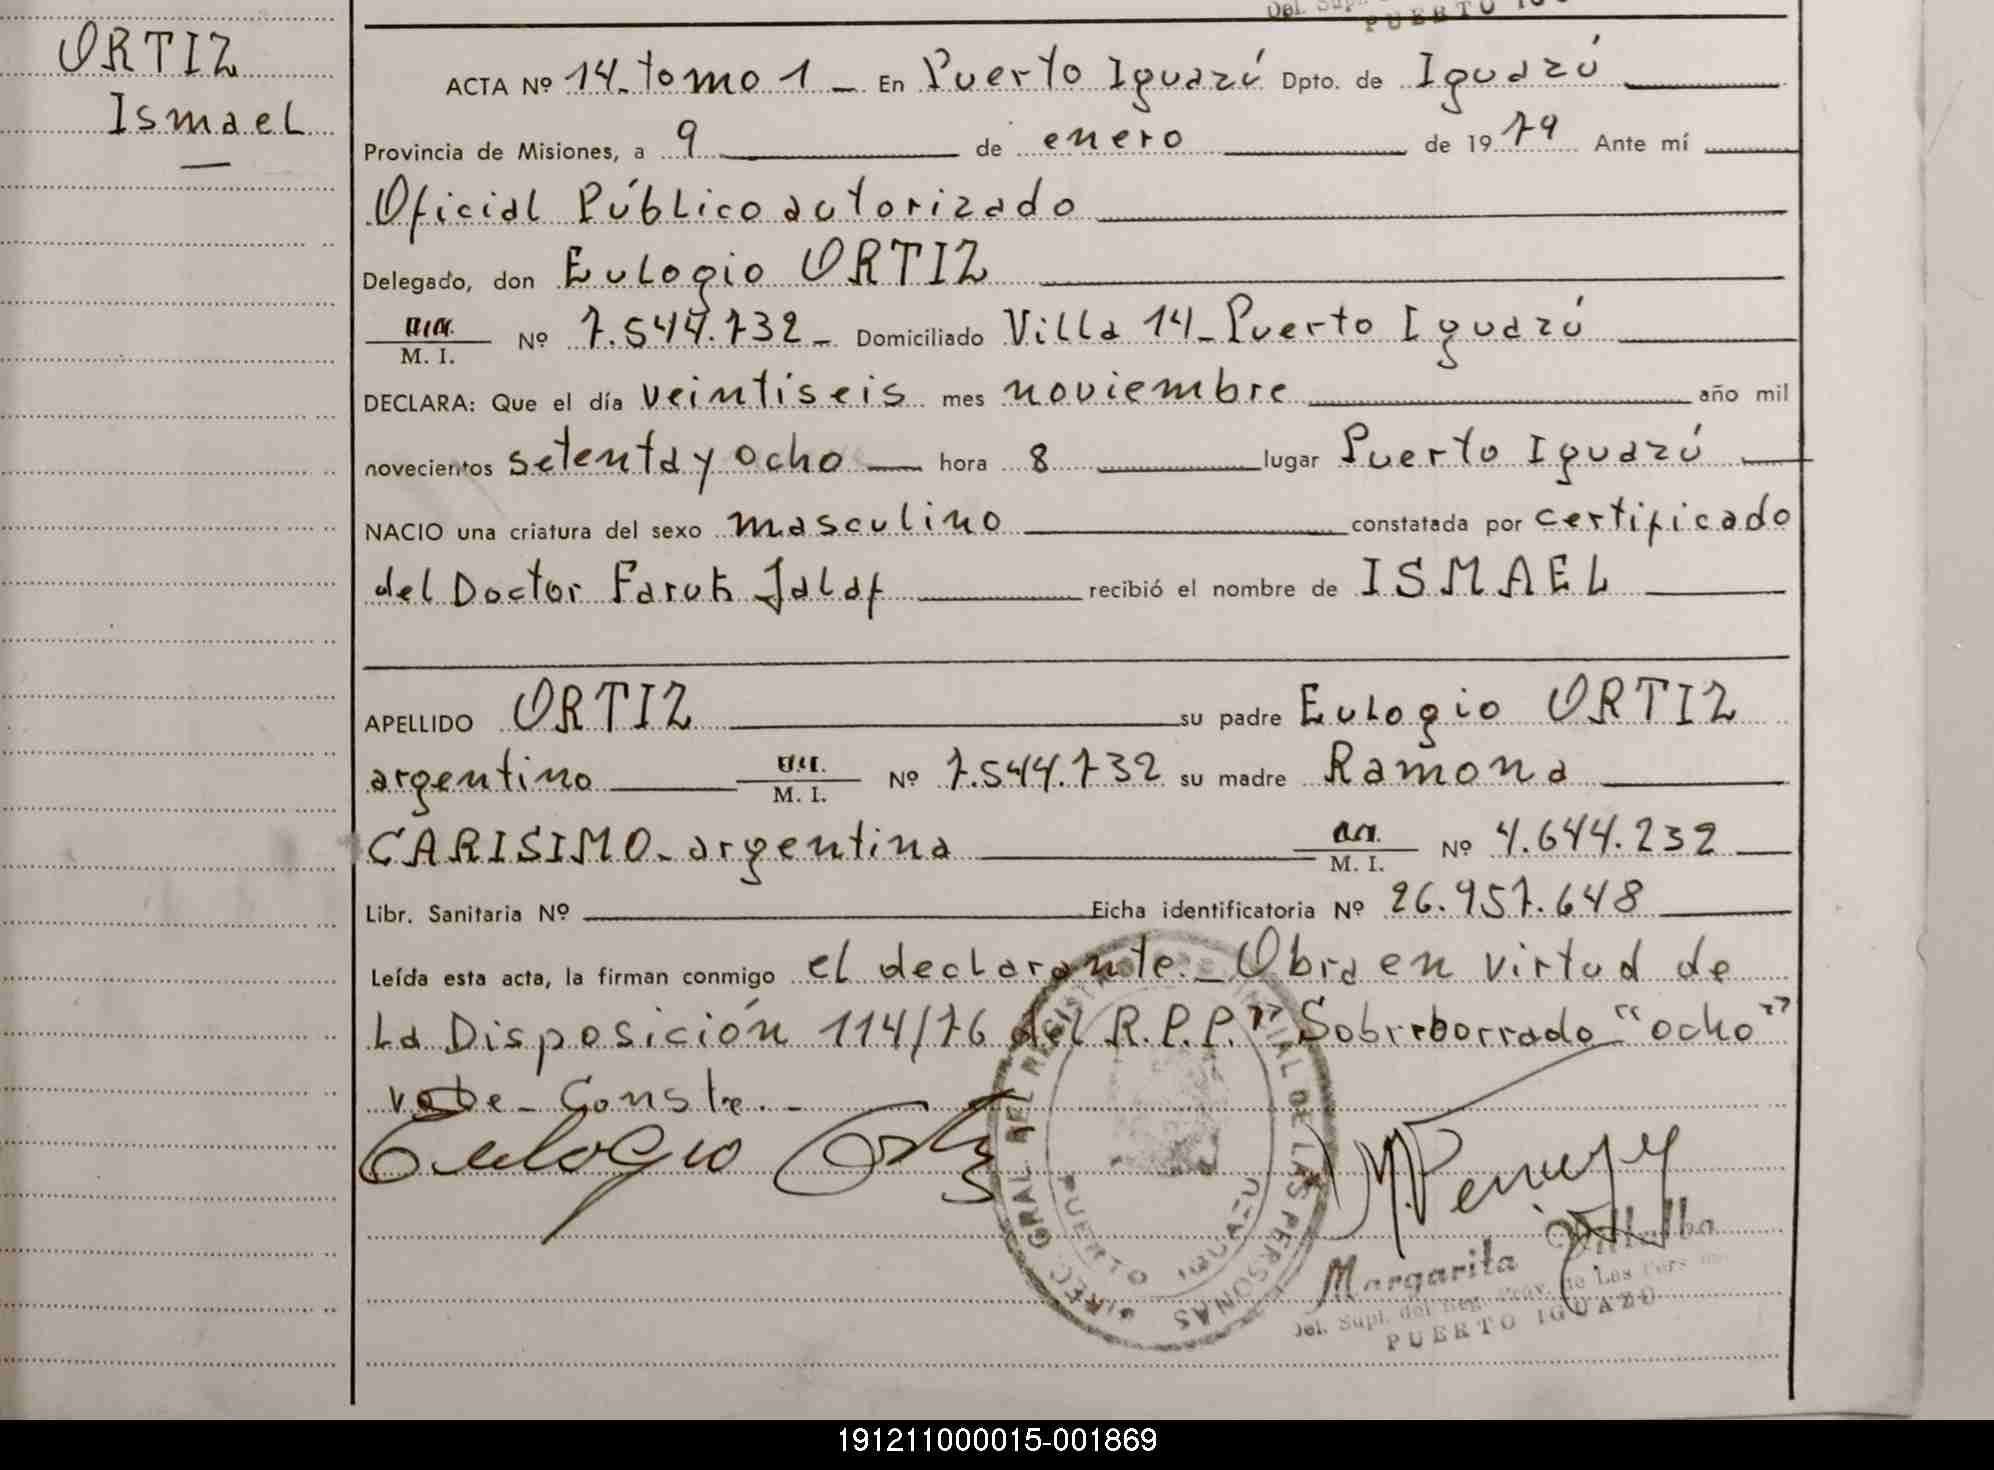 ORTIZ
Ismael
PUERTO
ACTA Nº 14_tomo 1 _ En Puerto Iguazú Dpto. de Iguazú
Provincia de Misiones, a 9 de enero de 1979 Ante mí
Oficial Público autorizado
Delegado, don Eulogio ORTIZ
M. I. Nº 7.544.732_ Domiciliado Villa 14_Puerto Iguazú
DECLARA: Que el día veintiseis mes noviembre año mil
novecientos setenta y ocho hora 8 lugar Puerto Iguazú
NACIO una criatura del sexo masculino constatada por certificado
del Doctor Faruk Jalaf recibió el nombre de ISMAEL
APELLIDO ORTIZ su padre Eulogio ORTIZ
argentino M. I. Nº 7.544.732 su madre Ramona
CARISIMO_argentina M. I. Nº 4.644.232
Libr. Sanitaria Nº Ficha identificatoria Nº 26.957.648
Leída esta acta, la firman conmigo el declarante._Obra en virtud de
La Disposición 114/76 del R.P.P." Sobreborrado "ocho"
vale_Conste._
Eulogio Ortiz
DIREC. GRAL. DEL REGISTRO PROVINCIAL DE LAS PERSONAS
PUERTO IGUAZU
Margarita Villalba
Del. Supl. del Reg. Prov. de Las Pers
PUERTO IGUAZU
191211000015-001869